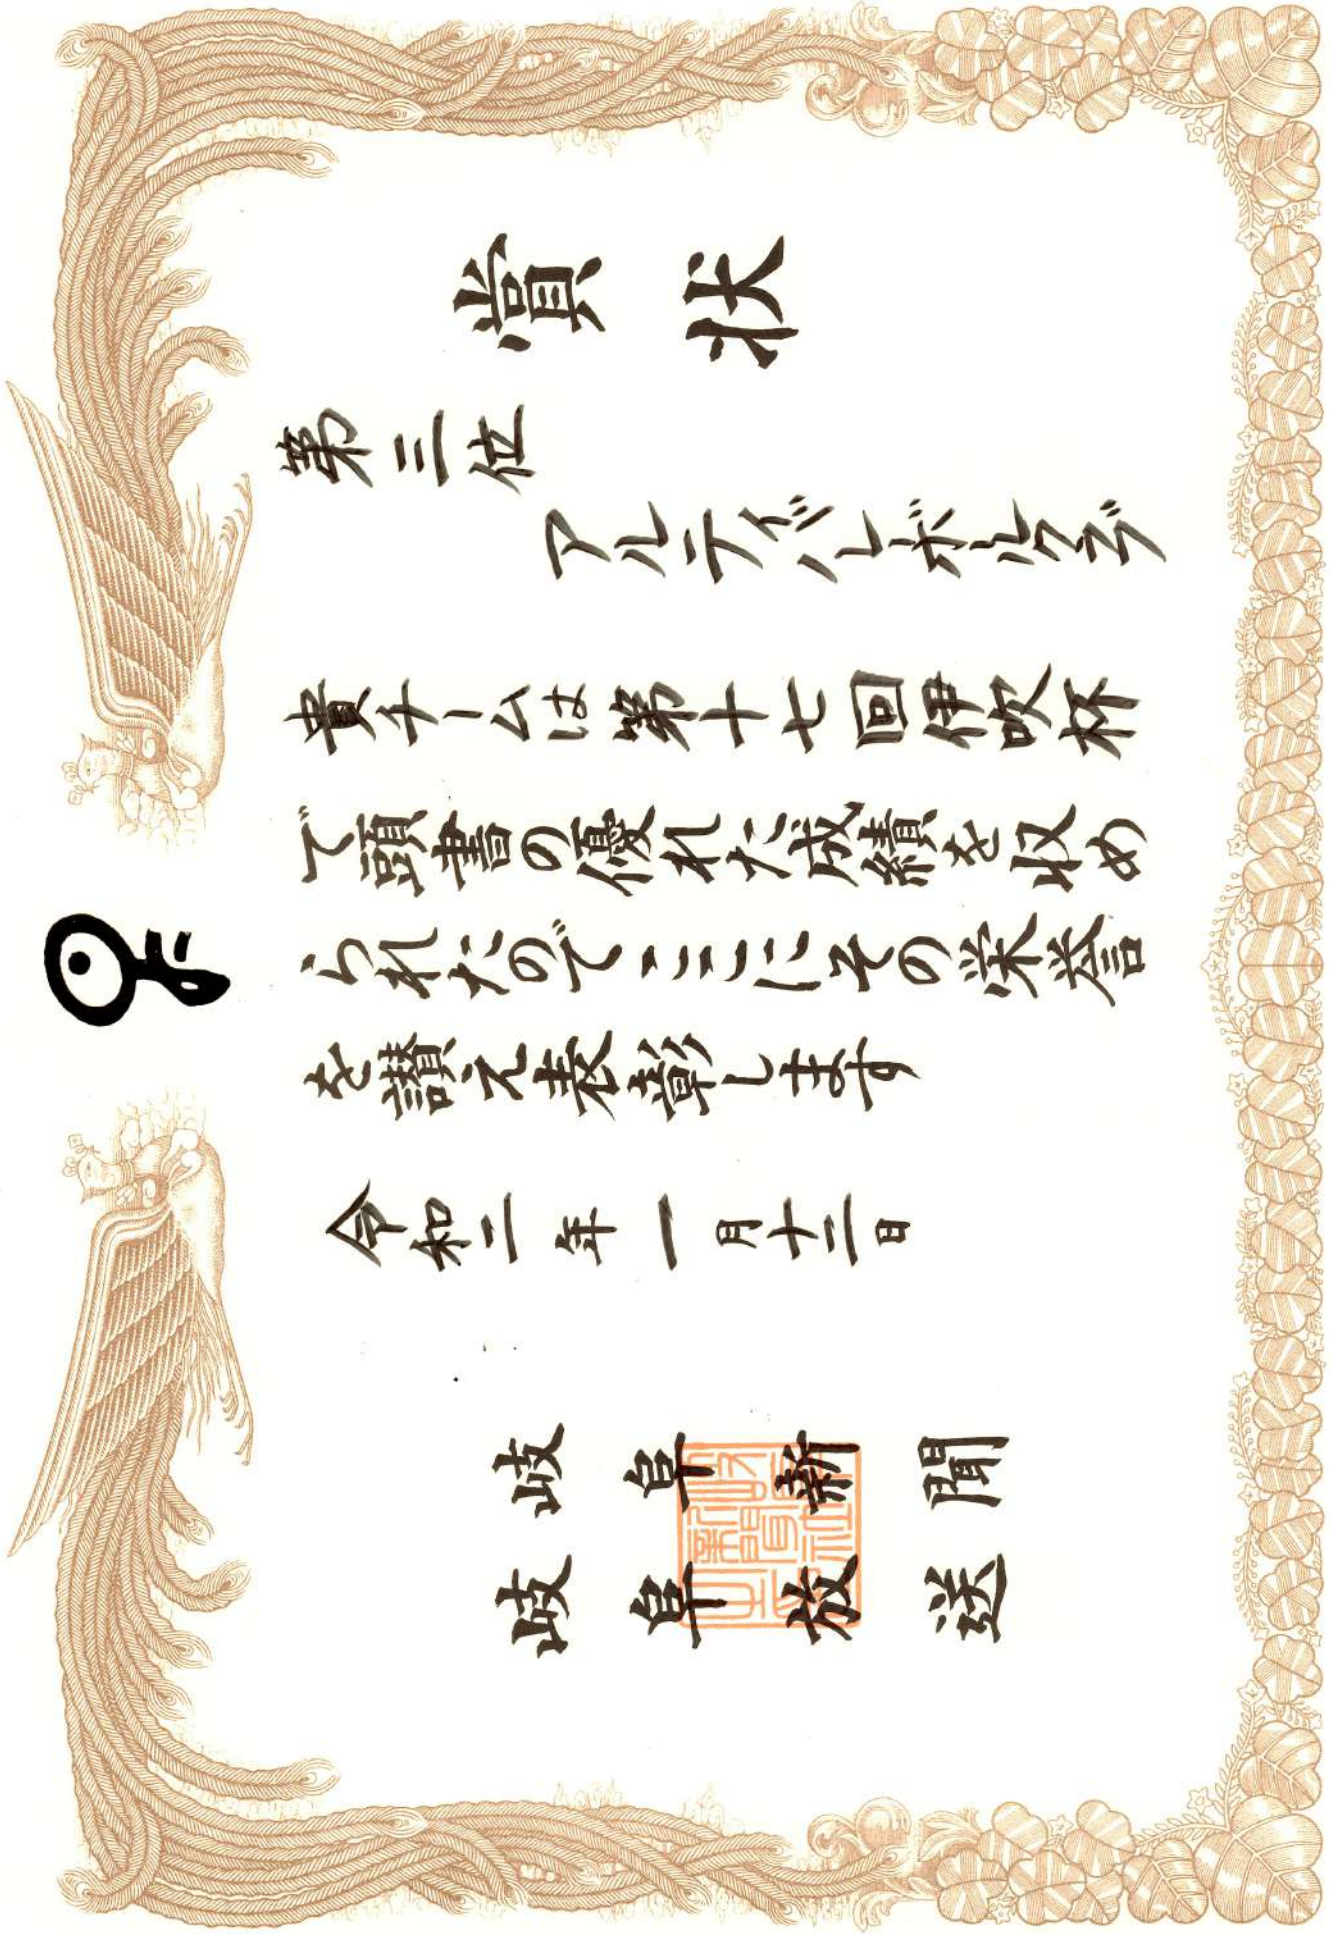 賞状
第三位
アルテバレーボールクラブ
貴チームは第十七回伊吹杯
で頭書の優れた成績を収め
られたのでここにその栄誉
を讃え表彰します
令和二年一月十二日
岐阜新聞
岐阜放送